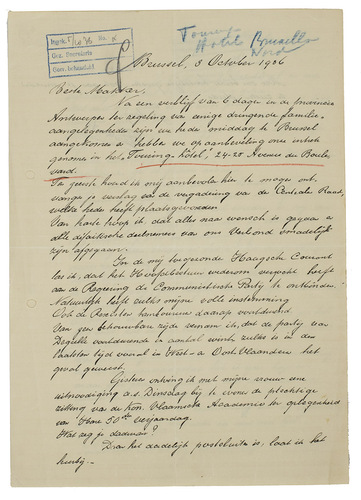 Touring
Hotel Bruxelles
Nord
Brussel, 3 October 1936
Beste Makker,
Na een verblijf van 6 dagen in de provincie
Antwerpen ter regeling van eenige dringende familie-
aangelegenheden zijn we heden middag te Brussel
aangekomen en hebben we op aanbeveling onze intrek
genomen in het „Touring-Hotel, 24-28 Avenue du Boule-
vard.
Ten zeerste houd ik mij aanbevolen hier te mogen ont-
vangen je verslag van de vergadering van de Centrale Raad,
welke heden heeft plaatsgevonden
Van harte hoop ik dat alles naar wensch is gegaan en
alle van ons Verbond voordeelig
zijn afgegaan.
In de mij toegezonden Haagsche Courant
las ik, dat het Hoofdbestuur wederom verzocht heeft
aan de Regeering de Communistische Party te ontbinden.
Natuurlijk heeft zulks mijne volle instemming
Ook de
Van zeer betrouwbare zijde vernam ik, dat de party van
Degrelle voortdurend in aantal wint, zulks is in den
laatsten tijd vooral in West- en Oost-Vlaanderen het
geval geweest.
Gisteren ontving ik met mijne vrouw eene
uitnoodiging a.s. Dinsdag bij te wonen de plechtige
zitting van de Kon. Vlaamsche Academie ter gelegenheid
van Hare 50ste verjaardag.
Wat zeg je daarvan?
Daar het dadelijk postsluiting is, laat ik het
hierbij.